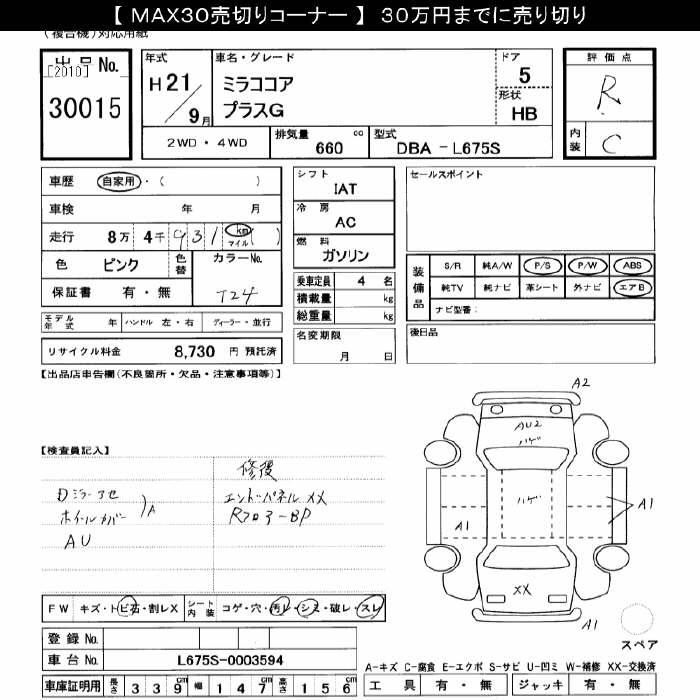 【 MAX30売切りコーナー 】 30万円までに売り切り
(複合機)対応用紙
出品 No.
[2010]
30015
年式
H21/9月
車名・グレード
ミラココア
プラスG
ドア
5
形状
HB
評価点
R
内装
C
2WD ・ 4WD
排気量 cc
660
型式
DBA - L675S
車歴 自家用・( )
車検 年 月
走行 8万 4千 931 km マイル ( )
色 ピンク 色替 カラーNo.
T24
保証書 有・無
モデル年式 年 ハンドル 左・右 ディーラー・並行
リサイクル料金 8,730 円 預託済
シフト
IAT
冷房
AC
燃料
ガソリン
乗車定員 4 名
積載量 kg
総重量 kg
名変期限
月 日
セールスポイント
装備品
S/R 純A/W P/S P/W ABS
純TV 純ナビ 革シート 外ナビ エアB
ナビ型番:
後日品
【出品店申告欄(不良箇所・欠品・注意事項等)】
【検査員記入】
Dミラーアセ
ホイールカバー
) A
AU
修復
エンドパネル XX
Rフロアー BP
A2
AU2
ハゲ
ハゲ
A1
A1
XX
A1
スペア
FW キズ・トビ石・割レX シート内装 コゲ・穴・汚レ・シミ・破レ・スレ
登録 No.
車台 No. L675S-0003594
車庫証明用 長さ 3 3 9 幅 1 4 7 高さ 1 5 6
A-キズ C-腐食 E-エクボ S-サビ U-凹ミ W-補修 XX-交換済
工具 有・無 ジャッキ 有・無